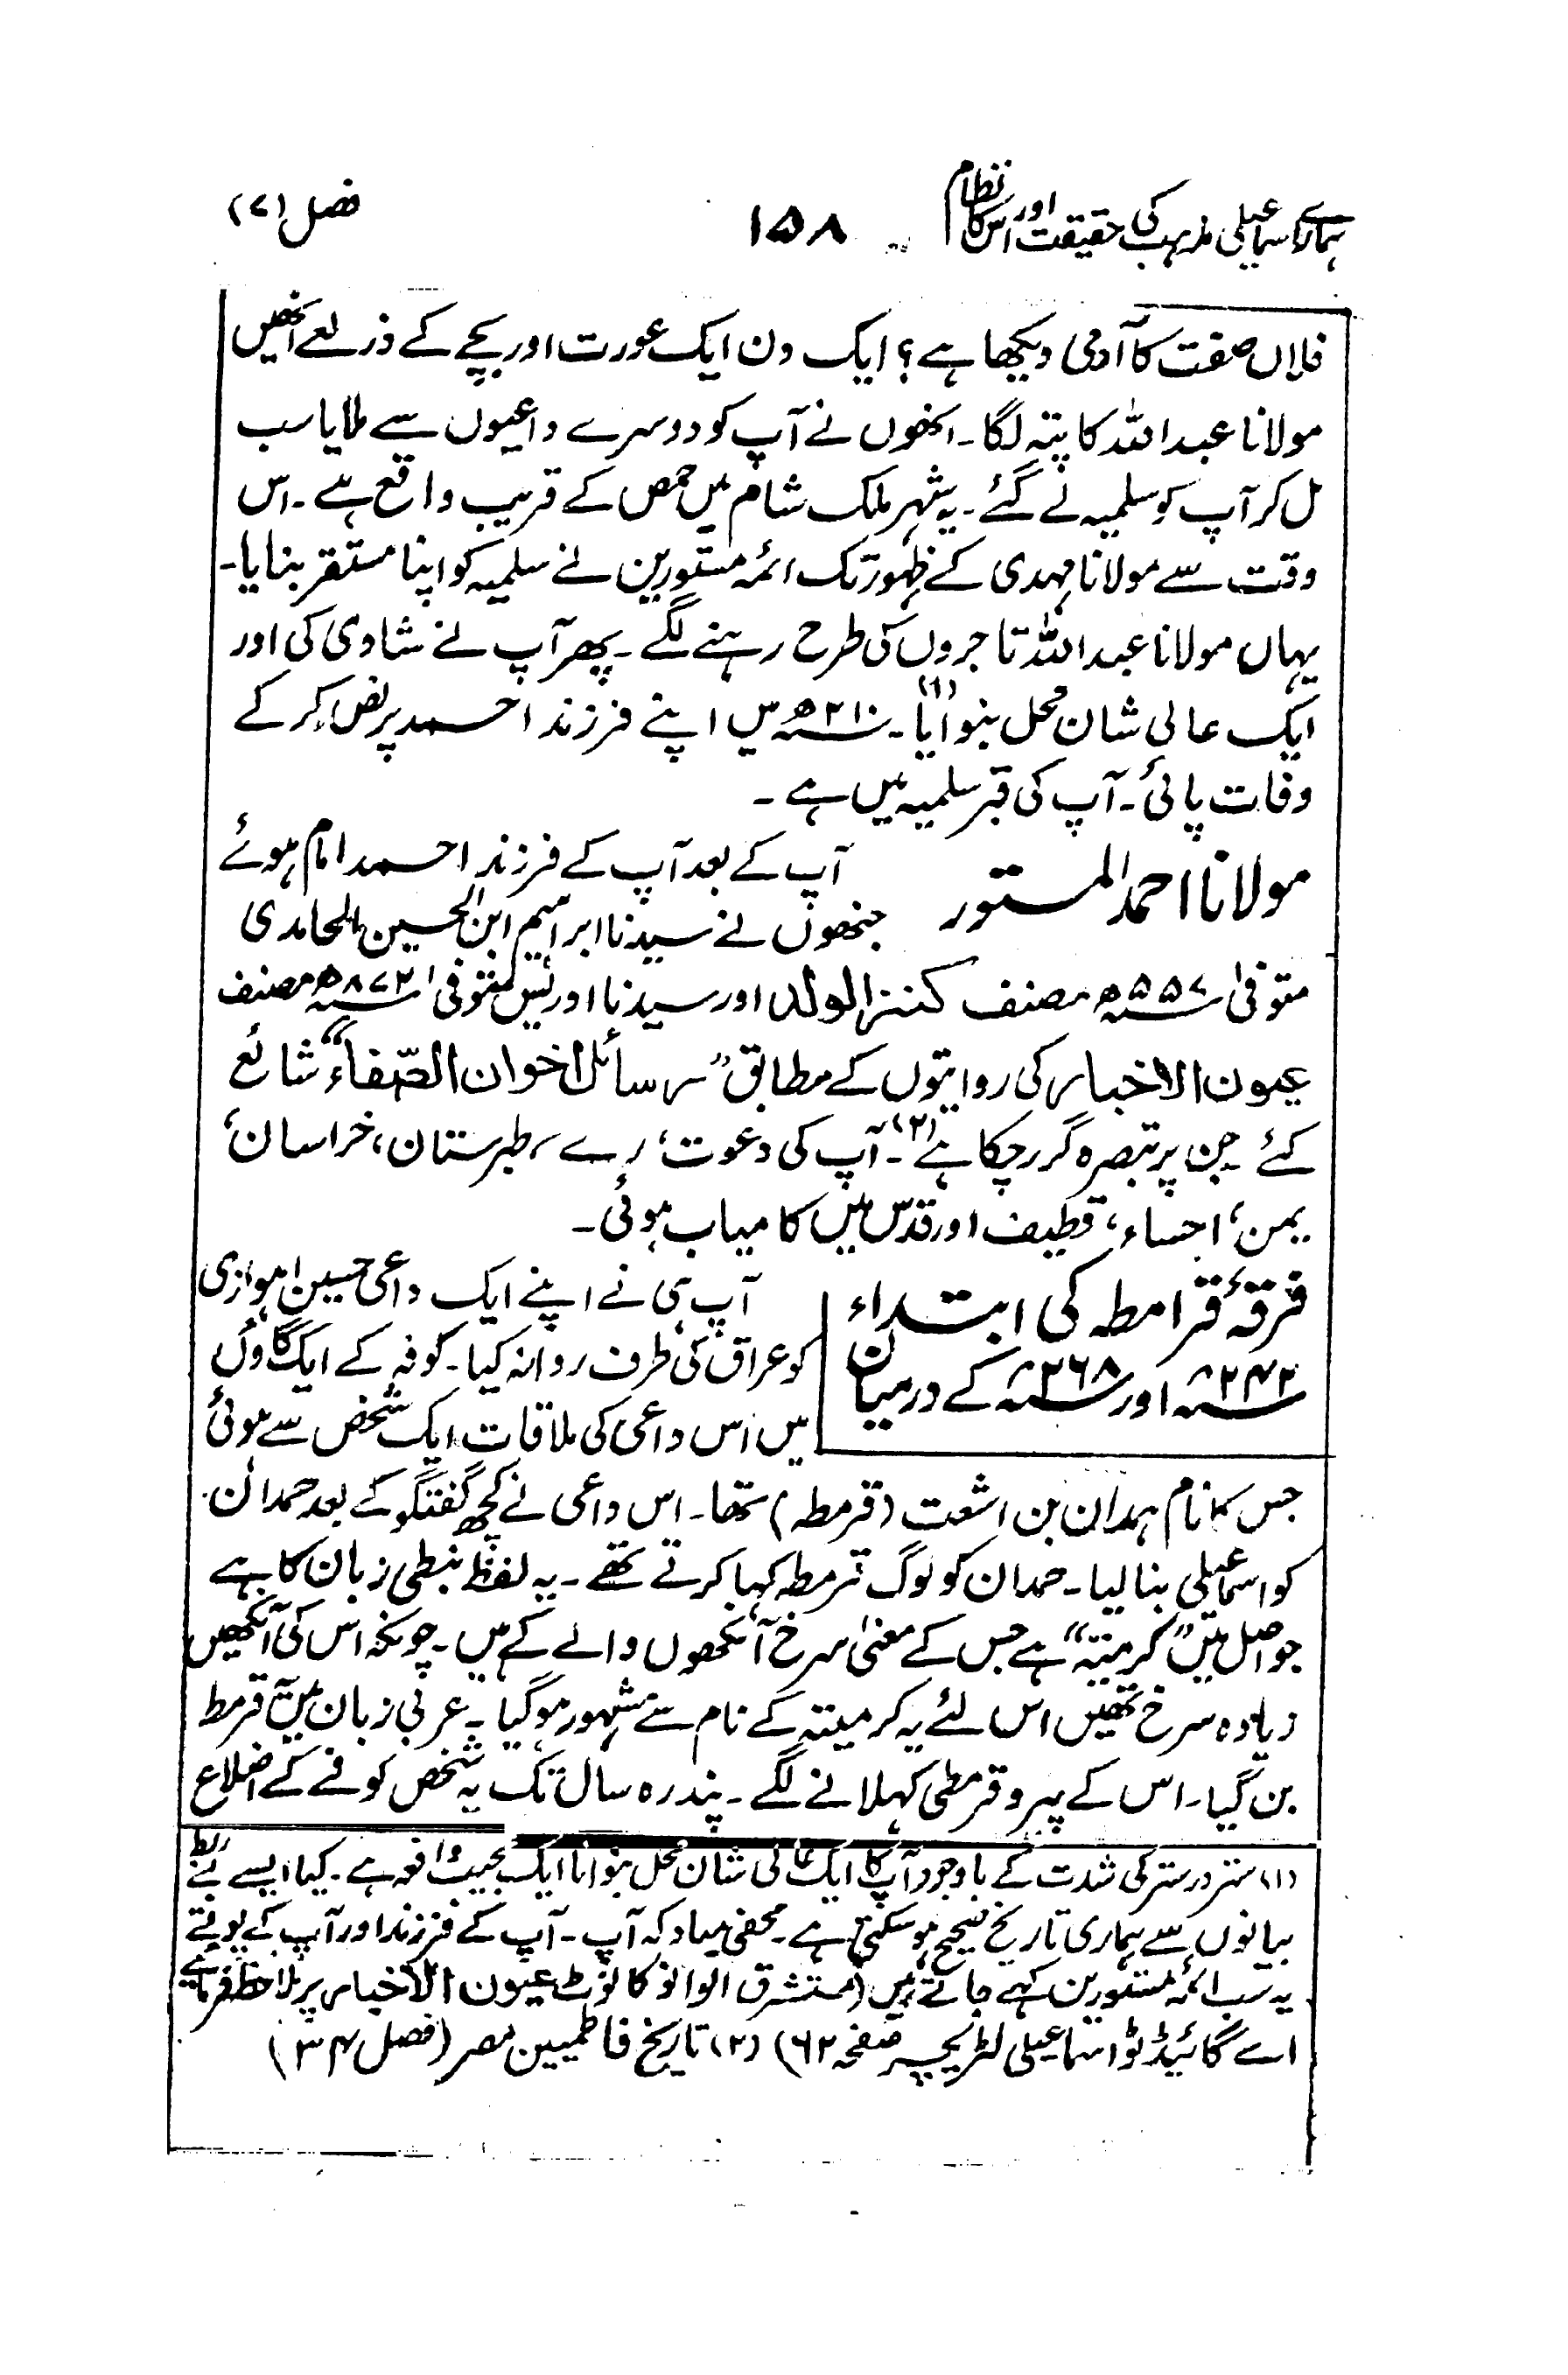 ہمارے اسماعیلی مذہب کی حقیقت اور اس کا نظام ۱۵۸ فصل (۷)
فلاں صفت کا آدمی دیکھا ہے؟ ایک دن ایک عورت اور بچے کے ذریعے انھیں
مولانا عبداللہ کا پتہ لگا۔ انھوں نے آپ کو دوسرے داعیوں سے ملایا سب
مل کر آپ کو سلمیہ لے گئے۔ یہ شہر ملک شام میں حمص کے قریب واقع ہے۔ اس
وقت سے مولانا مہدی کے ظہور تک ائمہ مستورین نے سلمیہ کو اپنا مستقر بنایا۔
یہاں مولانا عبداللہ تاجروں کی طرح رہنے لگے۔ پھر آپ نے شادی کی اور
ایک عالی شان محل بنوایا(۱)۔ سنہ ۲۱۰ھ میں اپنے فرزند احمد پر نص کر کے
وفات پائی۔ آپ کی قبر سلمیہ میں ہے۔
مولانا احمد المستور
آپ کے بعد آپ کے فرزند احمد امام ہوئے
جنھوں نے سیدنا ابراہیم ابن الحسین الحامدی
متوفیٰ سنہ ۵۵۷ھ مصنف کنز الولد اور سیدنا ادریس متوفیٰ سنہ ۸۷۲ھ مصنف
عیون الاخبار کی روایتوں کے مطابق ”رسائل اخوان الصّفاء“ شائع
کئے جن پر تبصرہ گزر چکا ہے(۲)۔ آپ کی دعوت، رے، طبرستان، خراسان،
یمن، احساء، قطیف اور قدس میں کامیاب ہوئی۔
فرقۂ قرامطہ کی ابتداء
سنہ ۲۴۲ھ اور سنہ ۲۶۸ھ کے درمیان
آپ ہی نے اپنے ایک داعی حسین اہوازی
کو عراق کی طرف روانہ کیا۔ کوفہ کے ایک گاؤں
میں اس داعی کی ملاقات ایک شخص سے ہوئی
جس کا نام ہمدان بن اشعت (قرمطہ) تھا۔ اس داعی نے کچھ گفتگو کے بعد حمدان
کو اسماعیلی بنا لیا۔ حمدان کو لوگ قرمطہ کہا کرتے تھے۔ یہ لفظ نبطی زبان کا ہے
جو اصل میں ”کرمیتہ“ ہے جس کے معنیٰ سرخ آنکھوں والے کے ہیں۔ چونکہ اس کی آنکھیں
زیادہ سرخ تھیں اس لئے یہ کرمیتہ کے نام سے مشہور ہو گیا۔ عربی زبان میں قرمط
بن گیا۔ اس کے پیرو قرمطی کہلانے لگے۔ پندرہ سال تک یہ شخص کوفے کے اضلاع
(۱) ستر در ستر کی شدت کے باوجود آپ کا ایک عالی شان محل بنوانا ایک عجیب واقعہ ہے۔ کیا ایسے بے ربط
بیانوں سے ہماری تاریخ صحیح ہو سکتی ہے۔ مخفی مباد کہ آپ۔ آپ کے فرزند اور آپ کے پوتے
یہ سب ائمہ مستورین کہے جاتے ہیں (مستشرق الوانو کا نوٹ عیون الاخبار پر ملاحظہ فرمائیے
اے گائیڈ ٹو اسماعیلی لٹریچر صفحہ ۶۲) (۲) تاریخ فاطمیین مصر (فصل ۳۴)